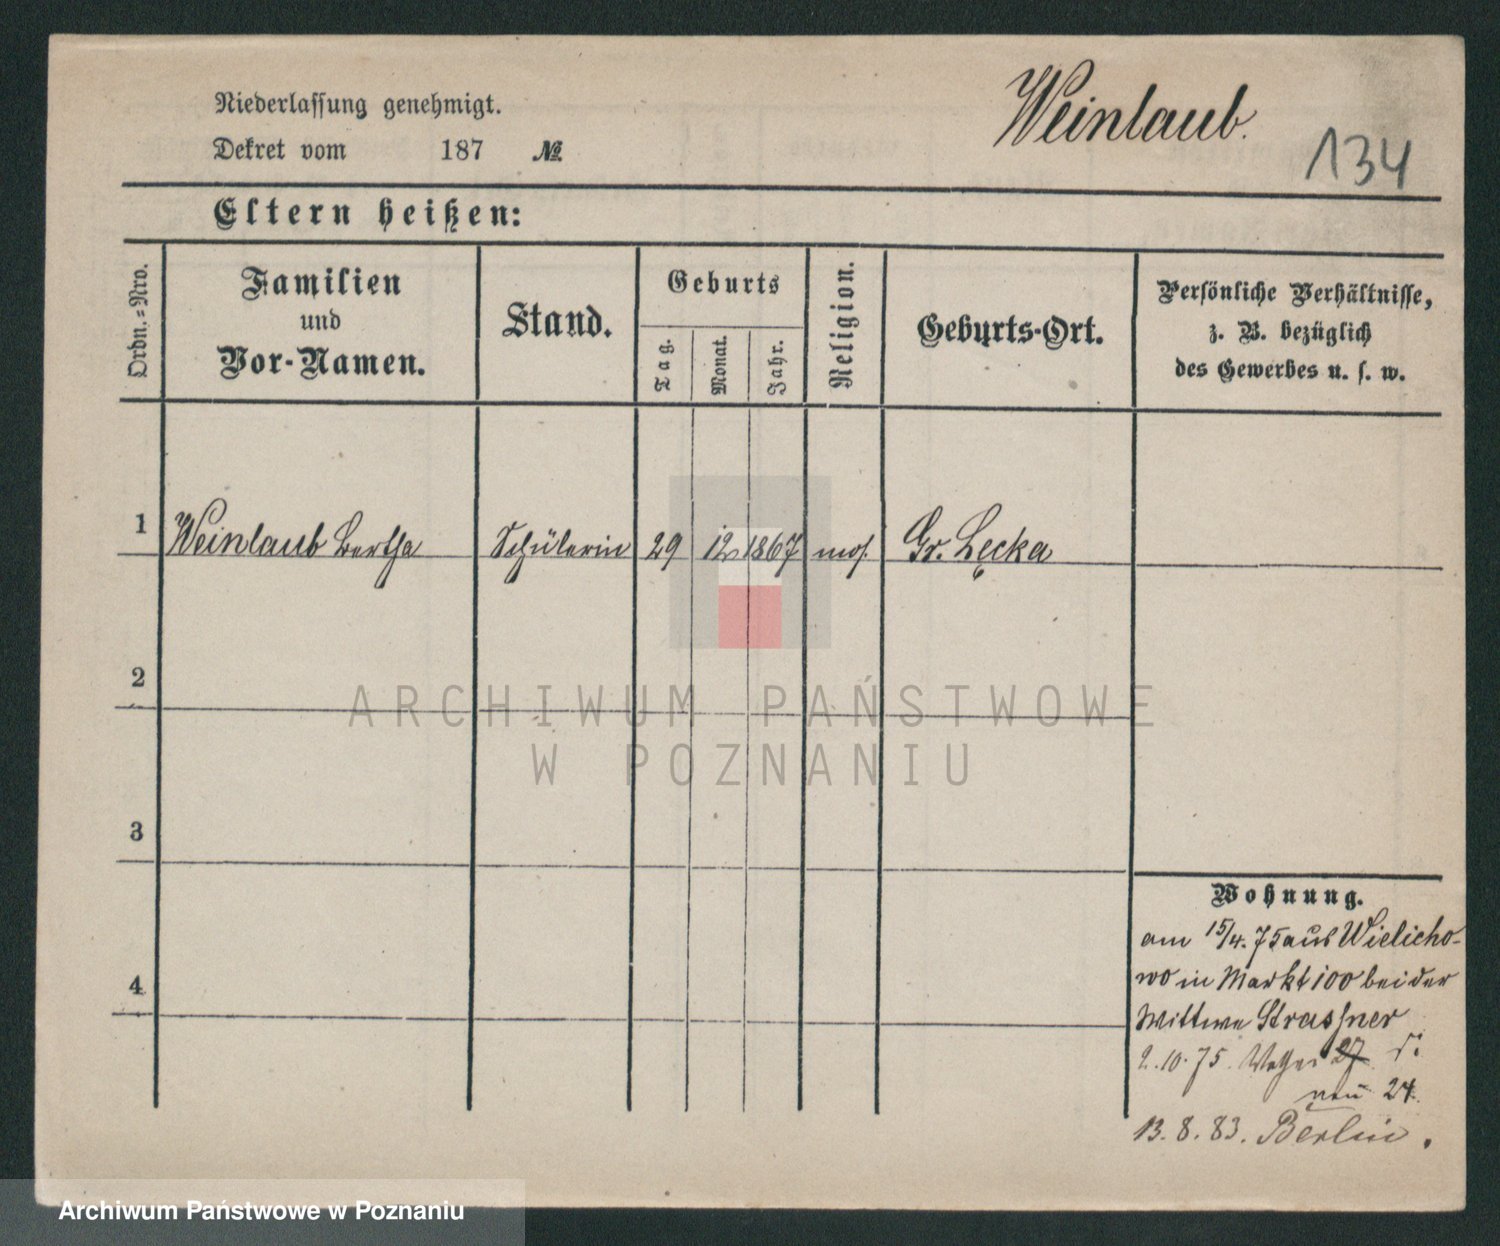 Niederlassung genehmigt.
Weinlaub.
Dekret vom 187 №
134
Eltern heißen:
Ordn.-Nro.
Familien
und
Vor-Namen.
Stand.
Geburts
Tag.
Monat.
Jahr.
Religion.
Geburts-Ort.
Persönliche Verhältnisse,
z. B. bezüglich
des Gewerbes u. s. w.
1 Weinlaub Bertha Schülerin 29 12 1867 mos. Gr. Lęcka
2
ARCHIWUM PAŃSTWOWE
W POZNANIU
3
Wohnung.
am 15/4. 75 aus Wielicho-
4
wo in Markt 100 bei der
Wittwe Strassner
2.10.75. 27
neu 24.
13. 8. 83. Berlin.
Archiwum Państwowe w Poznaniu